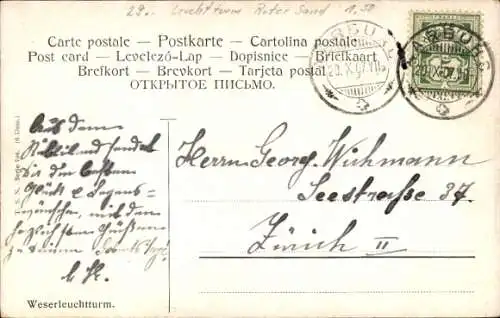 29.. Leuchtturm Roter Sand 1.50
Carte postale — Postkarte — Cartolina postale
Post card — Levelező-Lap — Dopisnice — Briefkaart
Brefkort — Brevkort — Tarjeta postal
ОТКРЫТОЕ ПИСЬМО.
AARBURG
AARBURG
Aus dem
sendet
Dir die besten
Glück & Segens-
wünsche, mit den
herzlichsten Grüßen
Herrn Georg Wichmann
Seestraße 37
Zürich II
Weserleuchtturm.